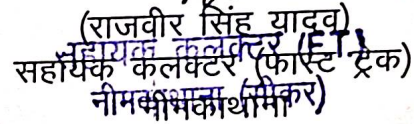 (राजवीर सिंह यादव)
सहायक कलक्टर (F.T.)
सहायक कलक्टर (फास्ट ट्रेक)
नीमकाथाना (सीकर)
नीमकाथाना